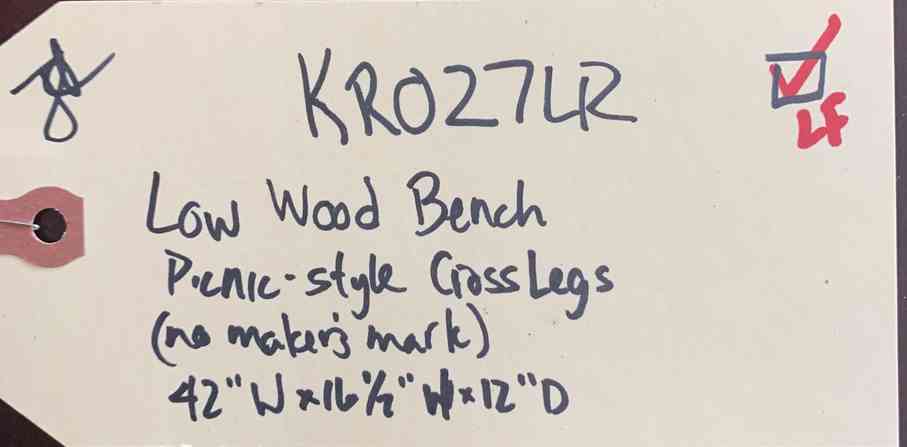 KR027LR
LF
Low Wood Bench
Picnic-style Cross Legs
(no maker's mark)
42" W x 16 ½" H x 12" D